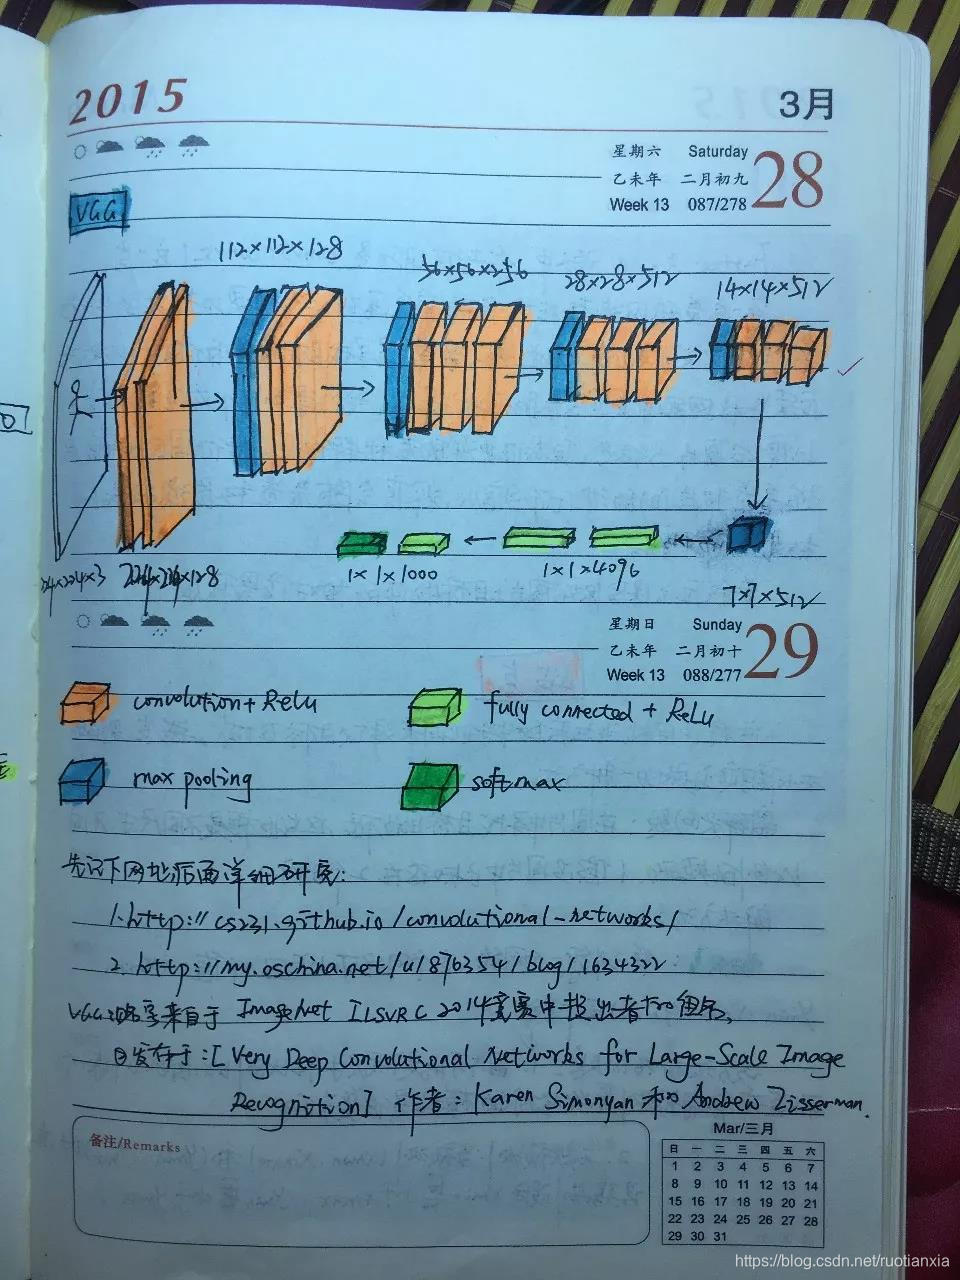 2015
3月
星期六 Saturday 28
乙未年 二月初九
Week 13 087/278
VGG
112×112×128
56×56×256
28×28×512
14×14×512
1×1×1000
1×1×4096
7×7×512
星期日 Sunday 29
乙未年 二月初十
Week 13 088/277
convolution+ReLu
fully connected + ReLu
max pooling
softmax
先记下网址后面详细研究:
1.http://cs231.github.io/convolutional-networks/
2.http://my.oschina.net/u/876354/blog/1634322
来自于 ImageNet ILSVRC 2014竞赛中提出者和组名,
发布于:[Very Deep Convolutional Networks for Large-Scale Image
Recognition] 作者:Karen Simonyan 和 Andrew Zisserman.
备注/Remarks
Mar/三月
日 一 二 三 四 五 六
1 2 3 4 5 6 7
8 9 10 11 12 13 14
15 16 17 18 19 20 21
22 23 24 25 26 27 28
29 30 31
https://blog.csdn.net/ruotianxia